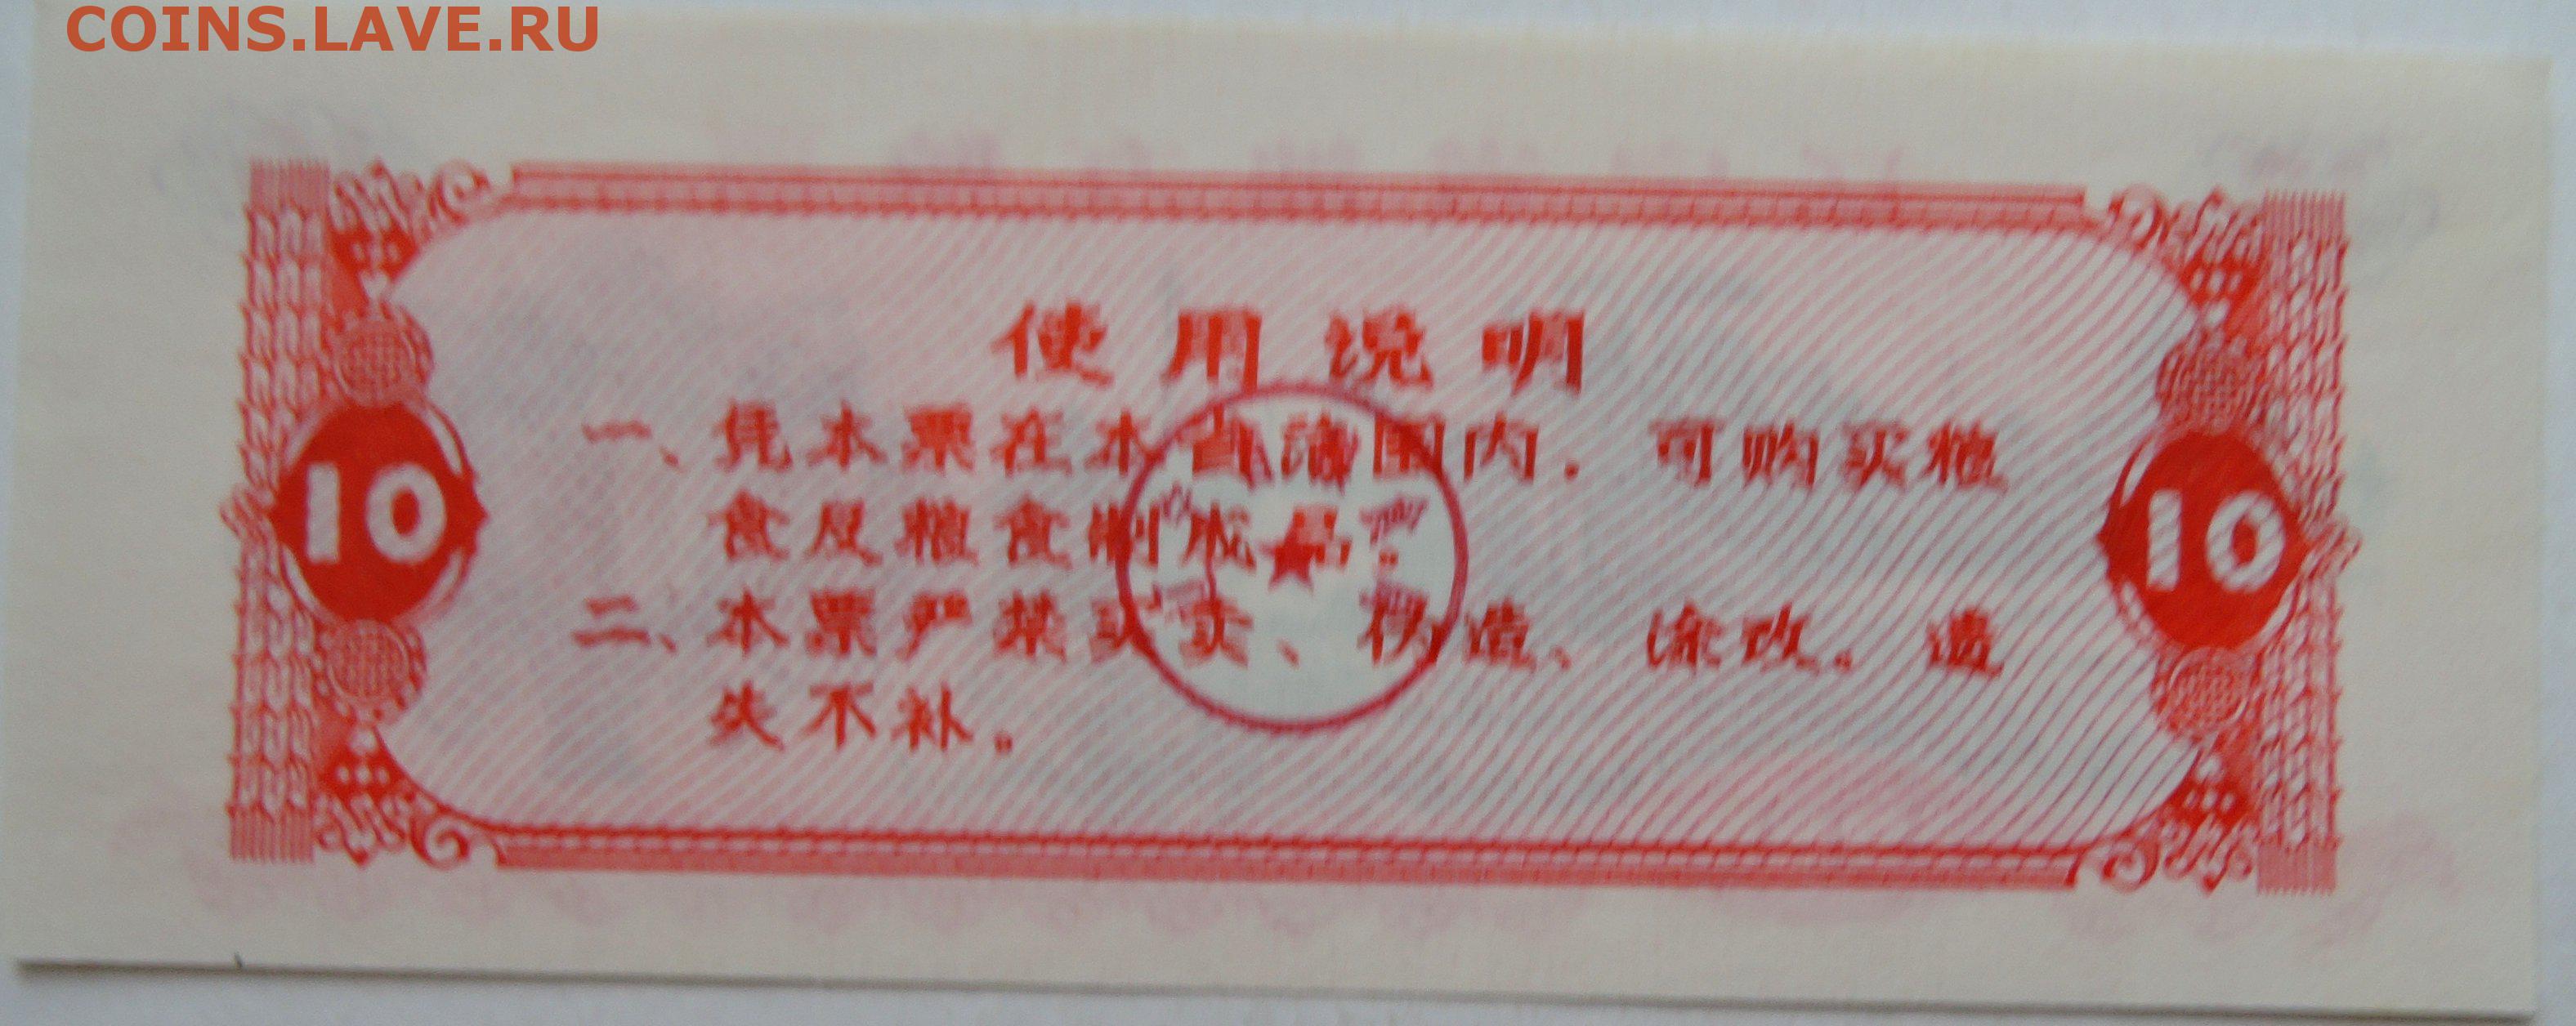 COINS.LAVE.RU
使用说明
一、凭本票在本省范围内．可购买粮
食及粮食制成品。
二、本票严禁买卖、伪造、涂改。遗
失不补。
10 10